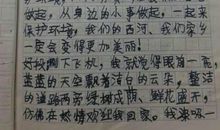 做起，从身边的小事做起，一起来
保护环境，我们的西河、我们家乡
一定会变得更加美丽！
好校刚下飞机，我就觉得眼前一亮，
蓝蓝的天空飘着洁白的云朵。整洁
的道路两旁绿树成荫、鲜花盛开，
仿佛在热情欢迎我回家。我深吸一